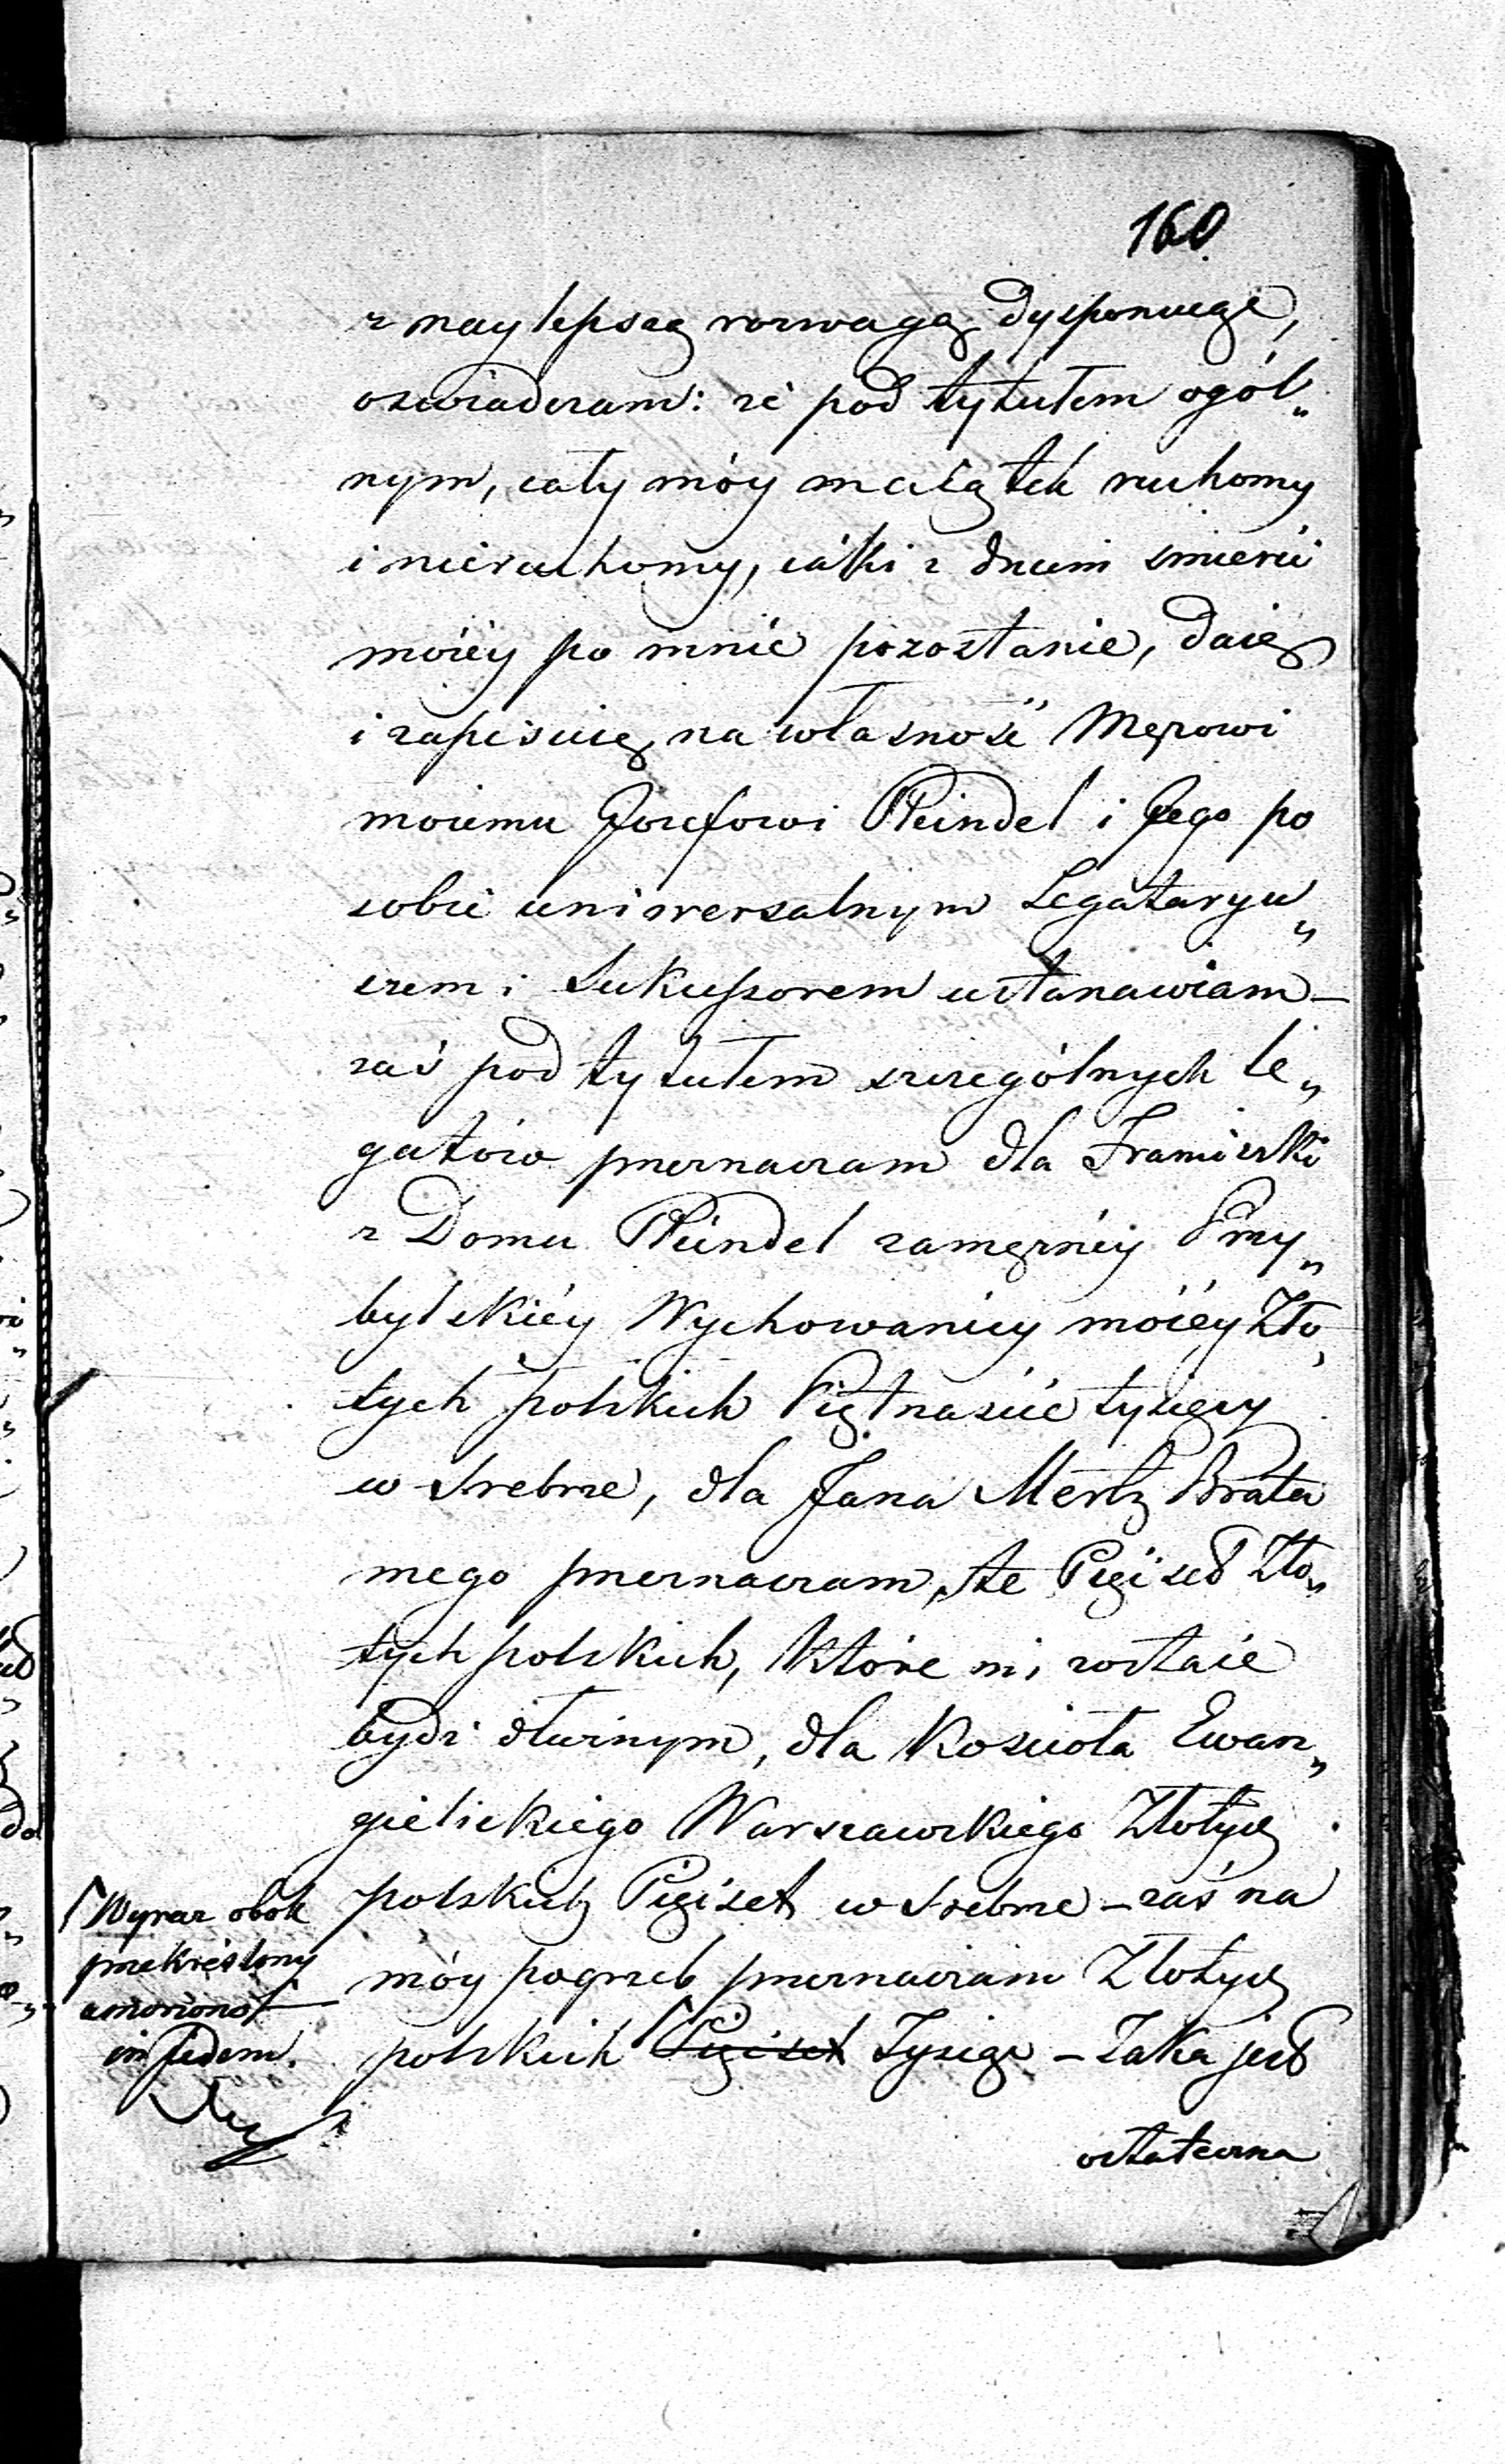 160.
z naylepszą rozwagą dysponuiąc,
oswiadczam: że pod tytułem ogól„
nym, cały móy maiątek ruchomy
i nieruchomy, iaki z dniem śmierci
moiéy po mnie pozostanie, daię
i zapisuię na własność Mężowi
moiemu Jozefowi Reindel i Jego po
sobie uniwersalnym Legataryu„
szem i Sukcessorem ustanawiam –
zaś pod tytułem szczególnych le„
gatów przeznaczam dla Franciszki
z Domu Reindel zamężnéy Przy„
bylskiéy Wychowanicy moiéy Zło„
tych polskich Piętnaście tysięcy
w Srebrze, dla Jana Mertz Brata
mego przeznaczam, te Pięćset Zło„
tych polskich, które mi zostaie
bydź dłużnym, dla Kościoła Ewan„
gielickiego Warszawskiego Złotych
polskich Pięćset w Srebrze – zaś na
móy pogrzeb przeznaczam Złotych
polskich Pięćset Tysiąc – Taka jest
ostateczna
Wyraz obok
przekreślony
umorzono
in fidem.